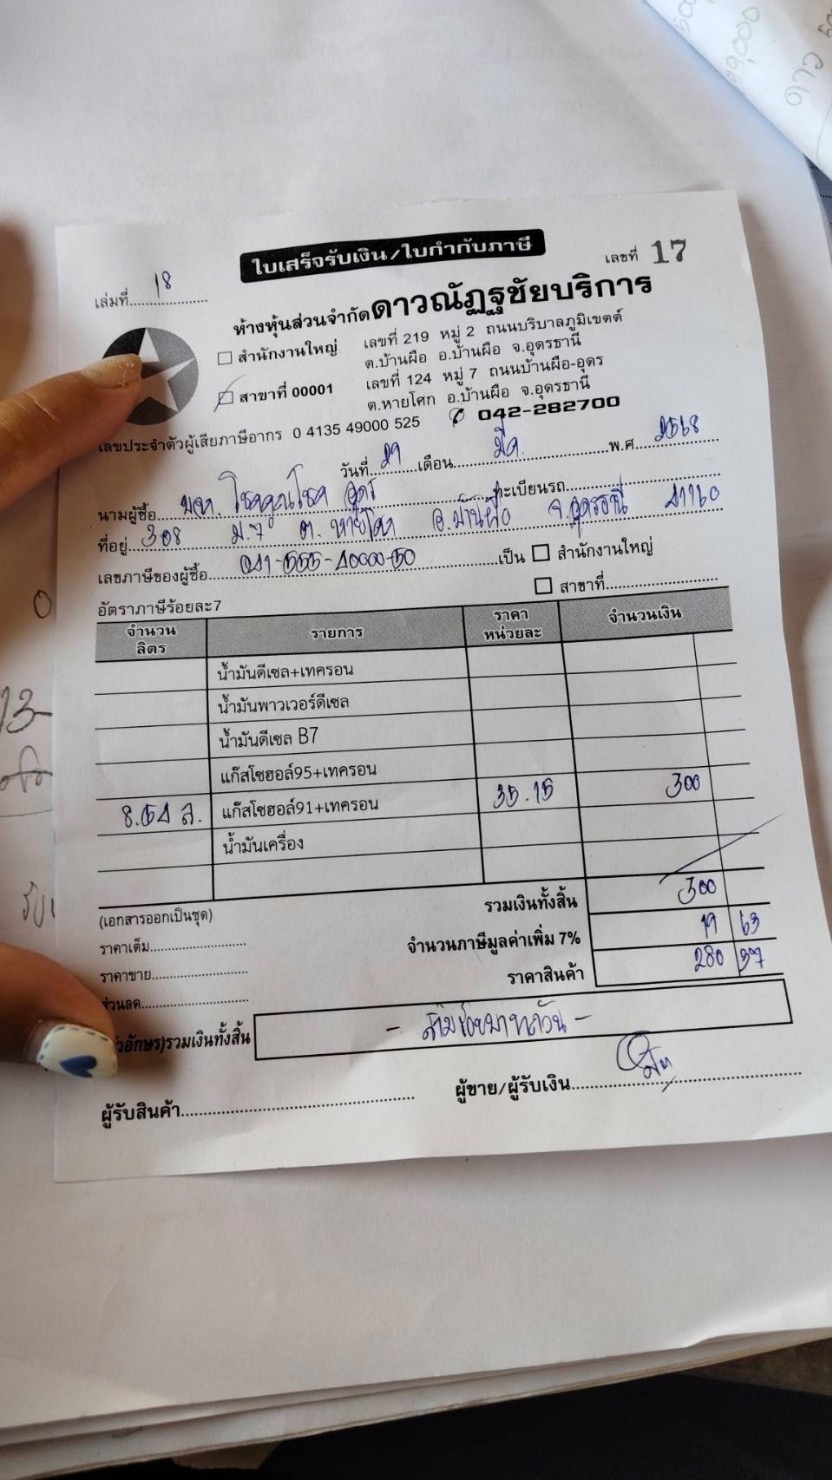 ใบเสร็จรับเงิน/ใบกำกับภาษี
เล่มที่ 18
เลขที่ 17
ห้างหุ้นส่วนจำกัดดาวณัฏฐชัยบริการ
สำนักงานใหญ่ เลขที่ 219 หมู่ 2 ถนนบริบาลภูมิเขตต์
ต.บ้านผือ อ.บ้านผือ จ.อุดรธานี
สาขาที่ 00001 เลขที่ 124 หมู่ 7 ถนนบ้านผือ-อุดร
ต.หายโศก อ.บ้านผือ จ.อุดรธานี
042-282700
เลขประจำตัวผู้เสียภาษีอากร 0 4135 49000 525
วันที่ 29 เดือน มีค. พ.ศ. 2568
นามผู้ซื้อ บจก. โชคคูณโชค อุดร ทะเบียนรถ
ที่อยู่ 308 ม.7 ต. หายโศก อ.บ้านผือ จ.อุดรธานี 41160
เลขภาษีของผู้ซื้อ 041-555-40000-50 เป็น สำนักงานใหญ่
สาขาที่
อัตราภาษีร้อยละ7
จำนวน ลิตร รายการ ราคา หน่วยละ จำนวนเงิน
น้ำมันดีเซล+เทครอน
น้ำมันพาวเวอร์ดีเซล
น้ำมันดีเซล B7
แก๊สโซฮอล์95+เทครอน
8.54 ล. แก๊สโซฮอล์91+เทครอน 35.15 300
น้ำมันเครื่อง
(เอกสารออกเป็นชุด) รวมเงินทั้งสิ้น 300
ราคาเต็ม จำนวนภาษีมูลค่าเพิ่ม 7% 19 63
ราคาขาย ราคาสินค้า 280 37
ส่วนลด
อักษร)รวมเงินทั้งสิ้น - สามร้อยบาทถ้วน -
ผู้รับสินค้า ผู้ขาย/ผู้รับเงิน